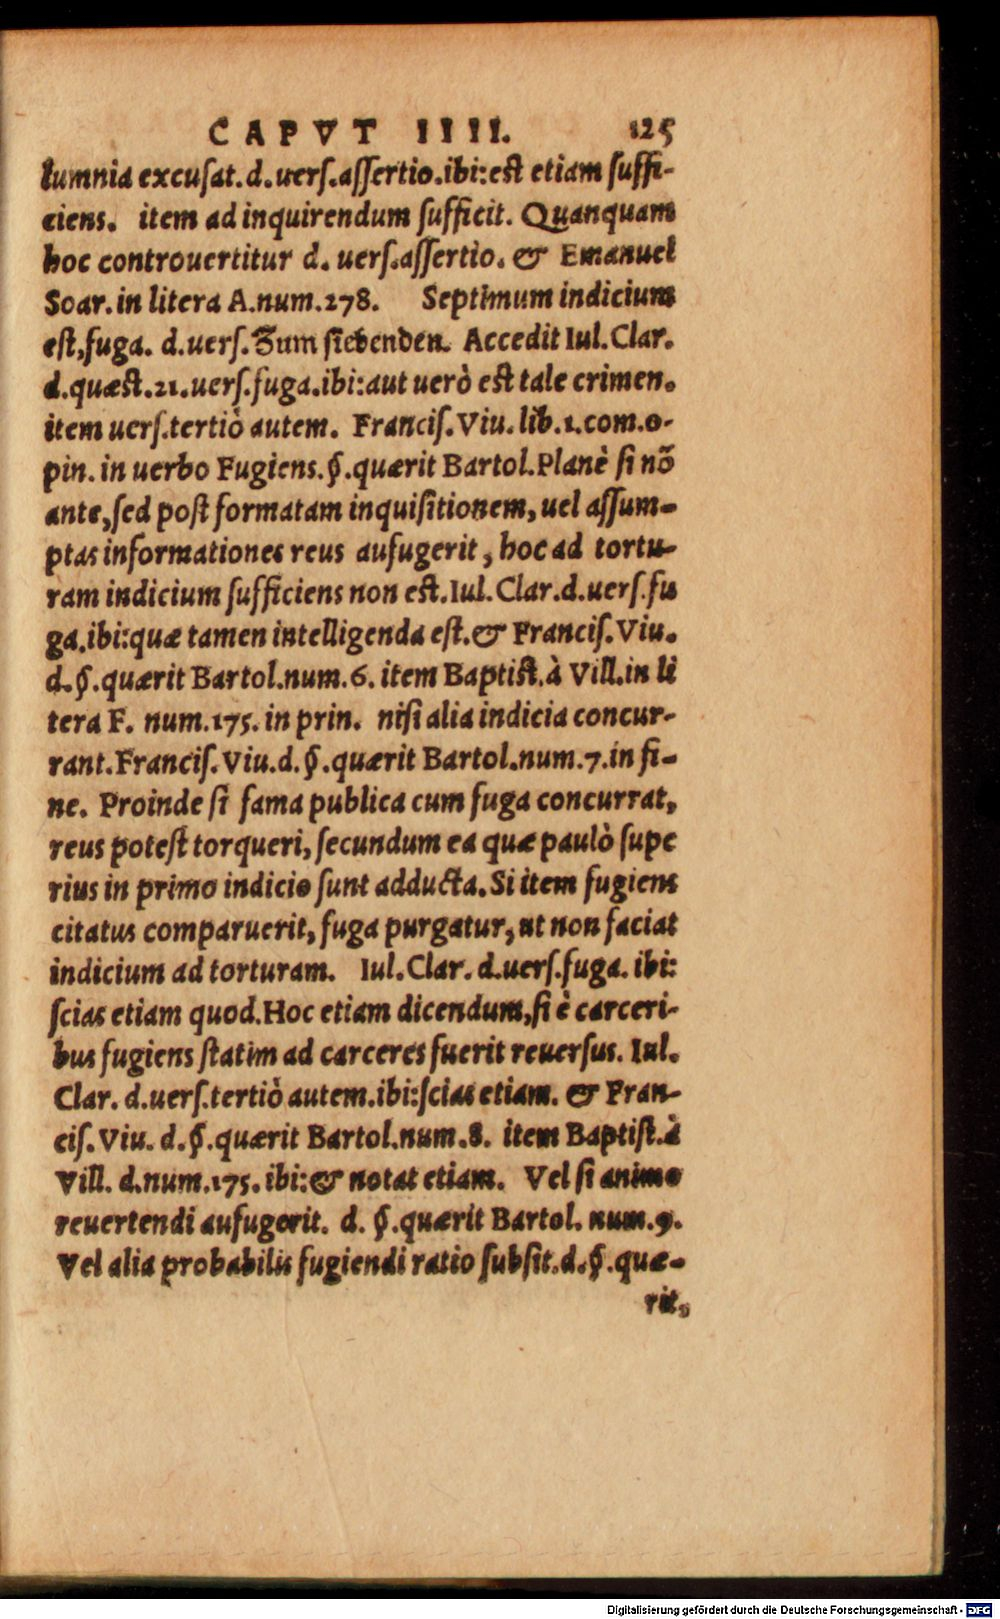 CAPVT IIII. 125
lumnia excusat. d. uers. assertio. ibi: est etiam suffi-
ciens. item ad inquirendum sufficit. Quanquam
hoc controuertitur d. uers. assertio. & Emanuel
Soar. in litera A. num. 278. Septimum indicium
est, fuga. d. uers. Zum siebenden. Accedit Iul. Clar.
d. quæst. 21. uers. fuga. ibi: aut uerò est tale crimen.
item uers. tertiò autem. Francis. Viu. lib. 1. com. o-
pin. in uerbo Fugiens. §. quærit Bartol. Planè si nõ
ante, sed post formatam inquisitionem, uel assum-
ptas informationes reus aufugerit, hoc ad tortu-
ram indicium sufficiens non est. Iul. Clar. d. uers. fu
ga. ibi: quæ tamen intelligenda est. & Francis. Viu.
d. §. quærit Bartol. num. 6. item Baptist. à Vill. in li
tera F. num. 175. in prin. nisi alia indicia concur-
rant. Francis. Viu. d. §. quærit Bartol. num. 7. in fi-
ne. Proinde si fama publica cum fuga concurrat,
reus potest torqueri, secundum ea quæ paulò supe
rius in primo indicio sunt adducta. Si item fugiens
citatus comparuerit, fuga purgatur, ut non faciat
indicium ad torturam. Iul. Clar. d. uers. fuga. ibi:
scias etiam quod. Hoc etiam dicendum, si è carceri-
bus fugiens statim ad carceres fuerit reuersus. Iul.
Clar. d. uers. tertiò autem. ibi: scias etiam. & Fran-
cis. Viu. d. §. quærit Bartol. num. 8. item Baptist. à
Vill. d. num. 175. ibi: & notat etiam. Vel si animo
reuertendi aufugerit. d. §. quærit Bartol. num. 9.
Vel alia probabilis fugiendi ratio subsit. d. §. quæ-
rit,
Digitalisierung gefördert durch die Deutsche Forschungsgemeinschaft - DFG